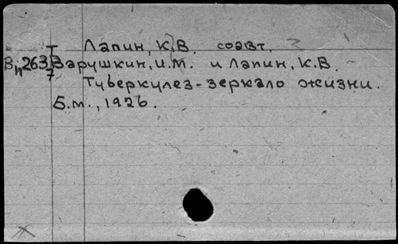 Лапин, К.В. соавт.
Вн263 Т/7 Варушкин, И.М. и Лапин, К.В.
Туберкулез - зеркало жизни.
Б.м., 1926.